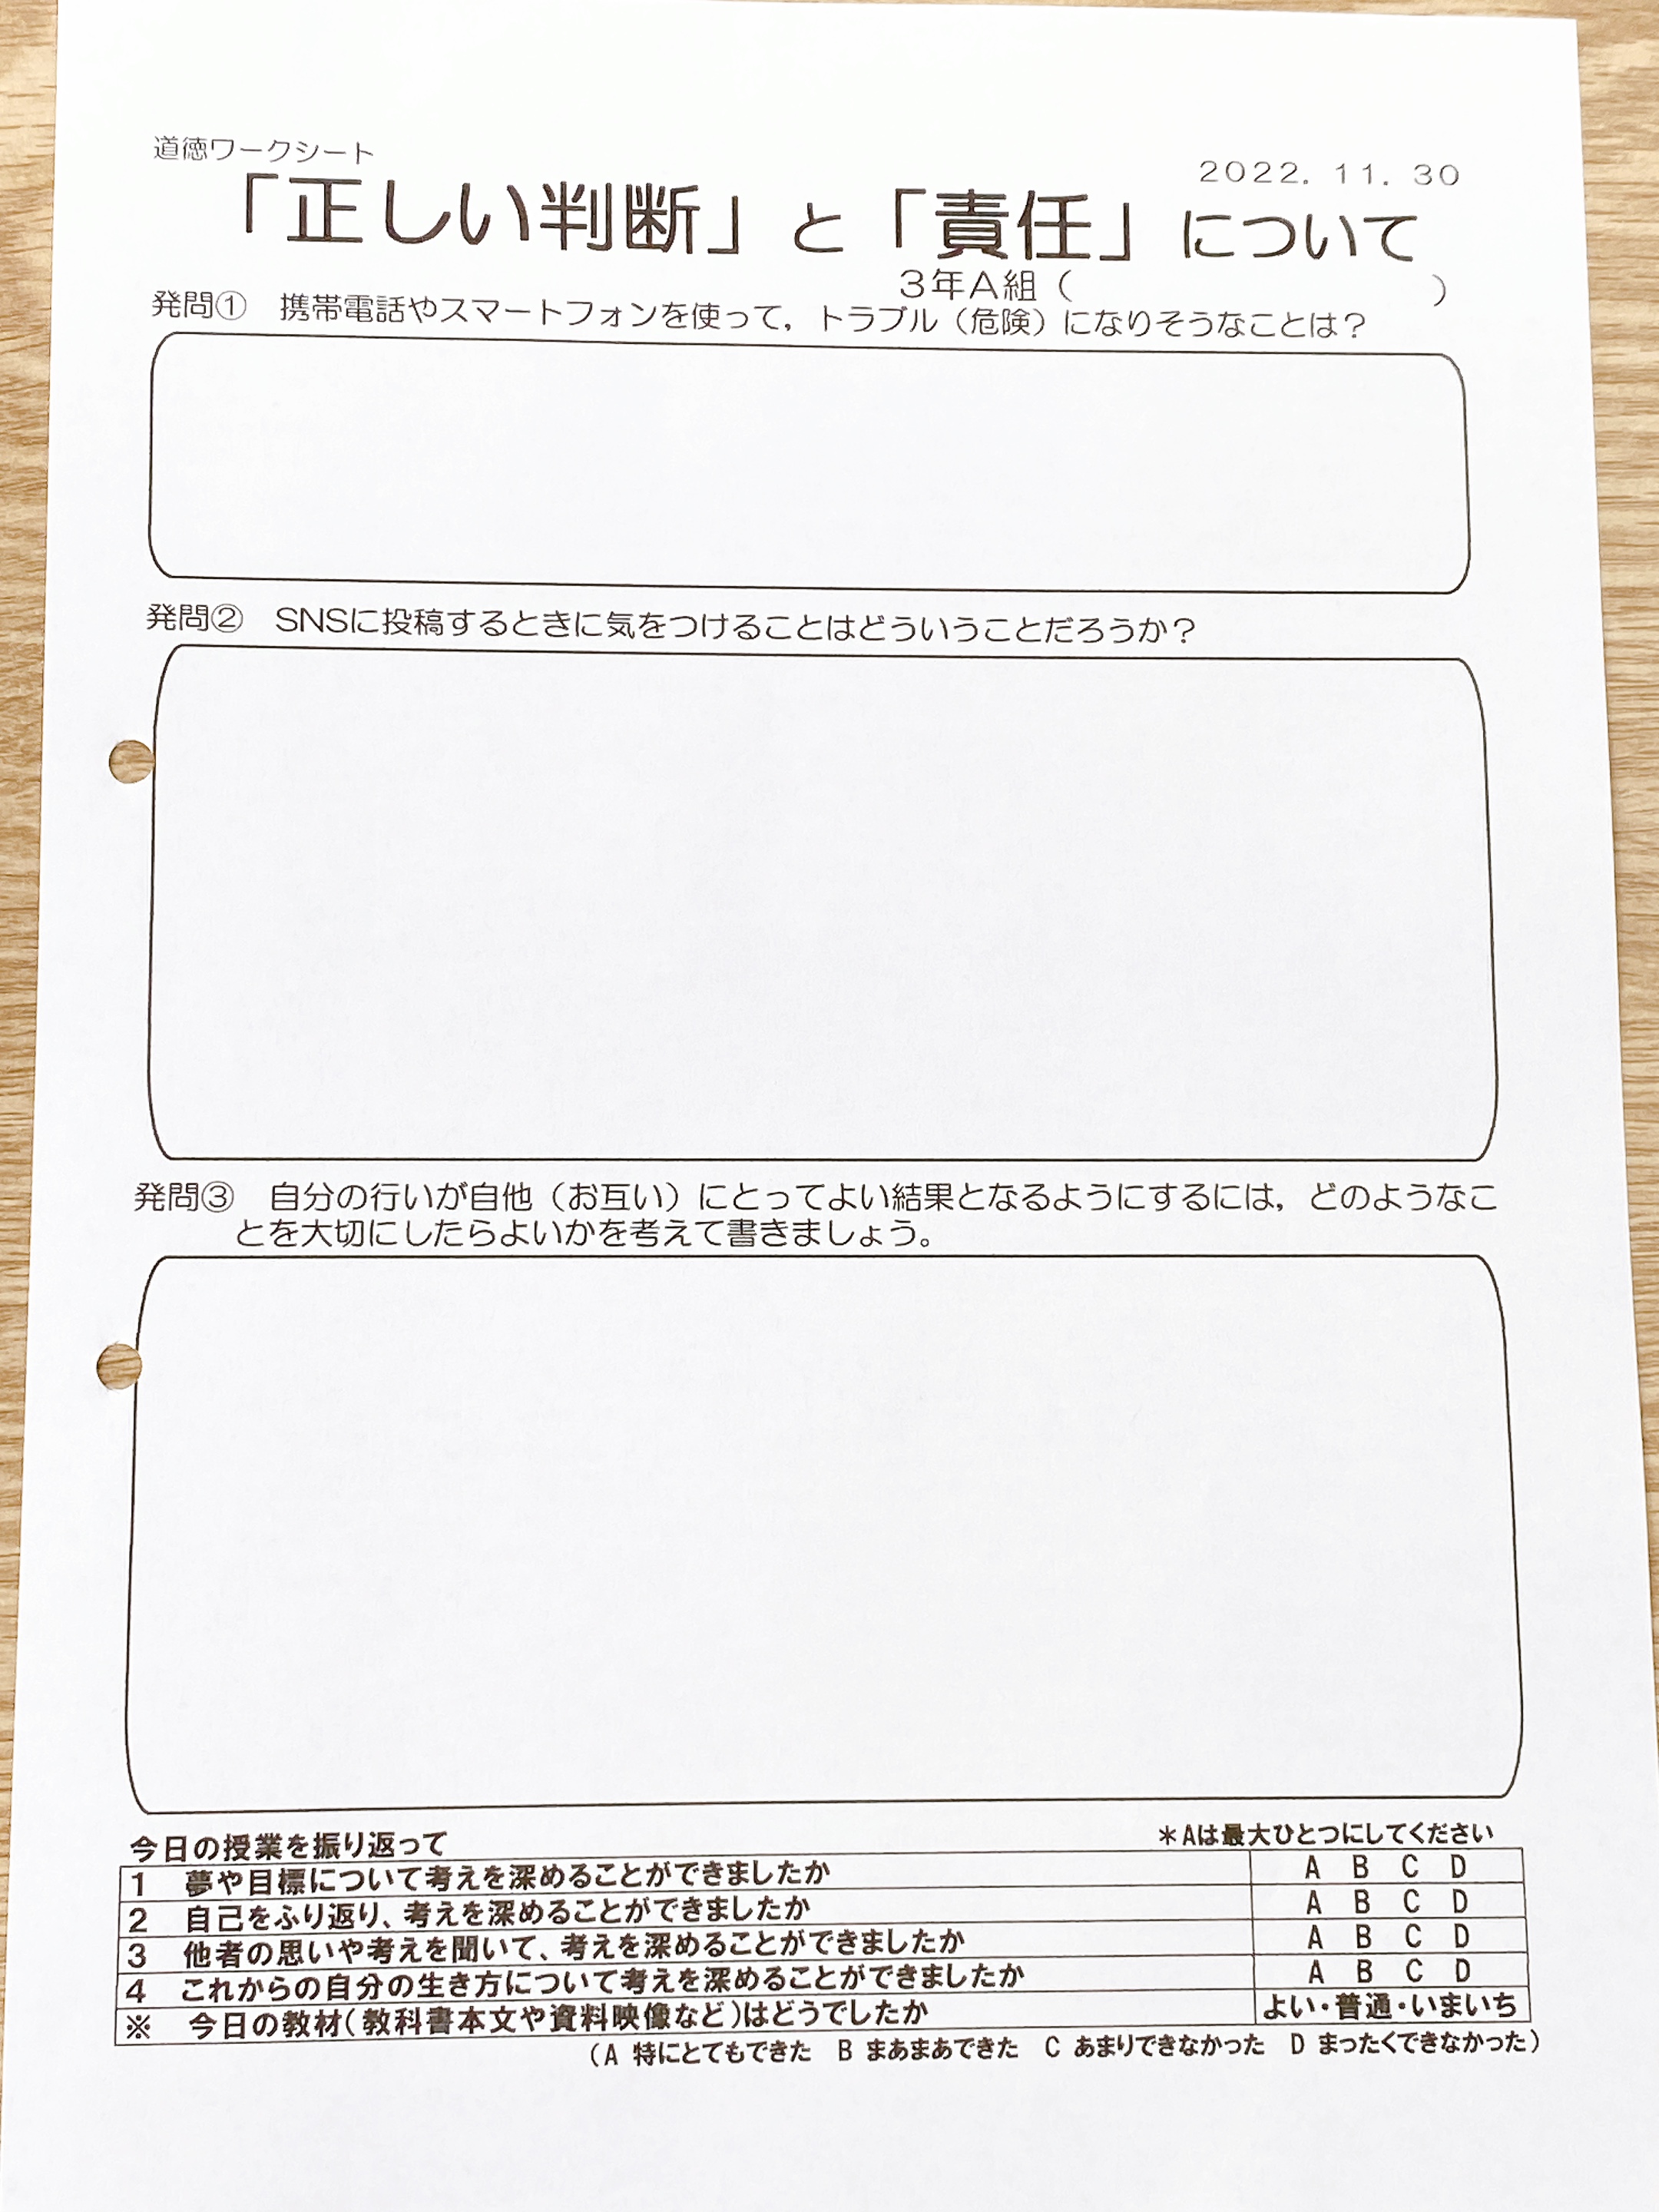 道徳ワークシート
2022. 11. 30
「正しい判断」と「責任」について
3年A組（　　　　　　　　）
発問①　携帯電話やスマートフォンを使って，トラブル（危険）になりそうなことは？
発問②　SNSに投稿するときに気をつけることはどういうことだろうか？
発問③　自分の行いが自他（お互い）にとってよい結果となるようにするには，どのようなこ
とを大切にしたらよいかを考えて書きましょう。
今日の授業を振り返って　＊Aは最大ひとつにしてください
1　夢や目標について考えを深めることができましたか　A　B　C　D
2　自己をふり返り、考えを深めることができましたか　A　B　C　D
3　他者の思いや考えを聞いて、考えを深めることができましたか　A　B　C　D
4　これからの自分の生き方について考えを深めることができましたか　A　B　C　D
※　今日の教材（教科書本文や資料映像など）はどうでしたか　よい・普通・いまいち
（A 特にとてもできた　B まあまあできた　C あまりできなかった　D まったくできなかった）